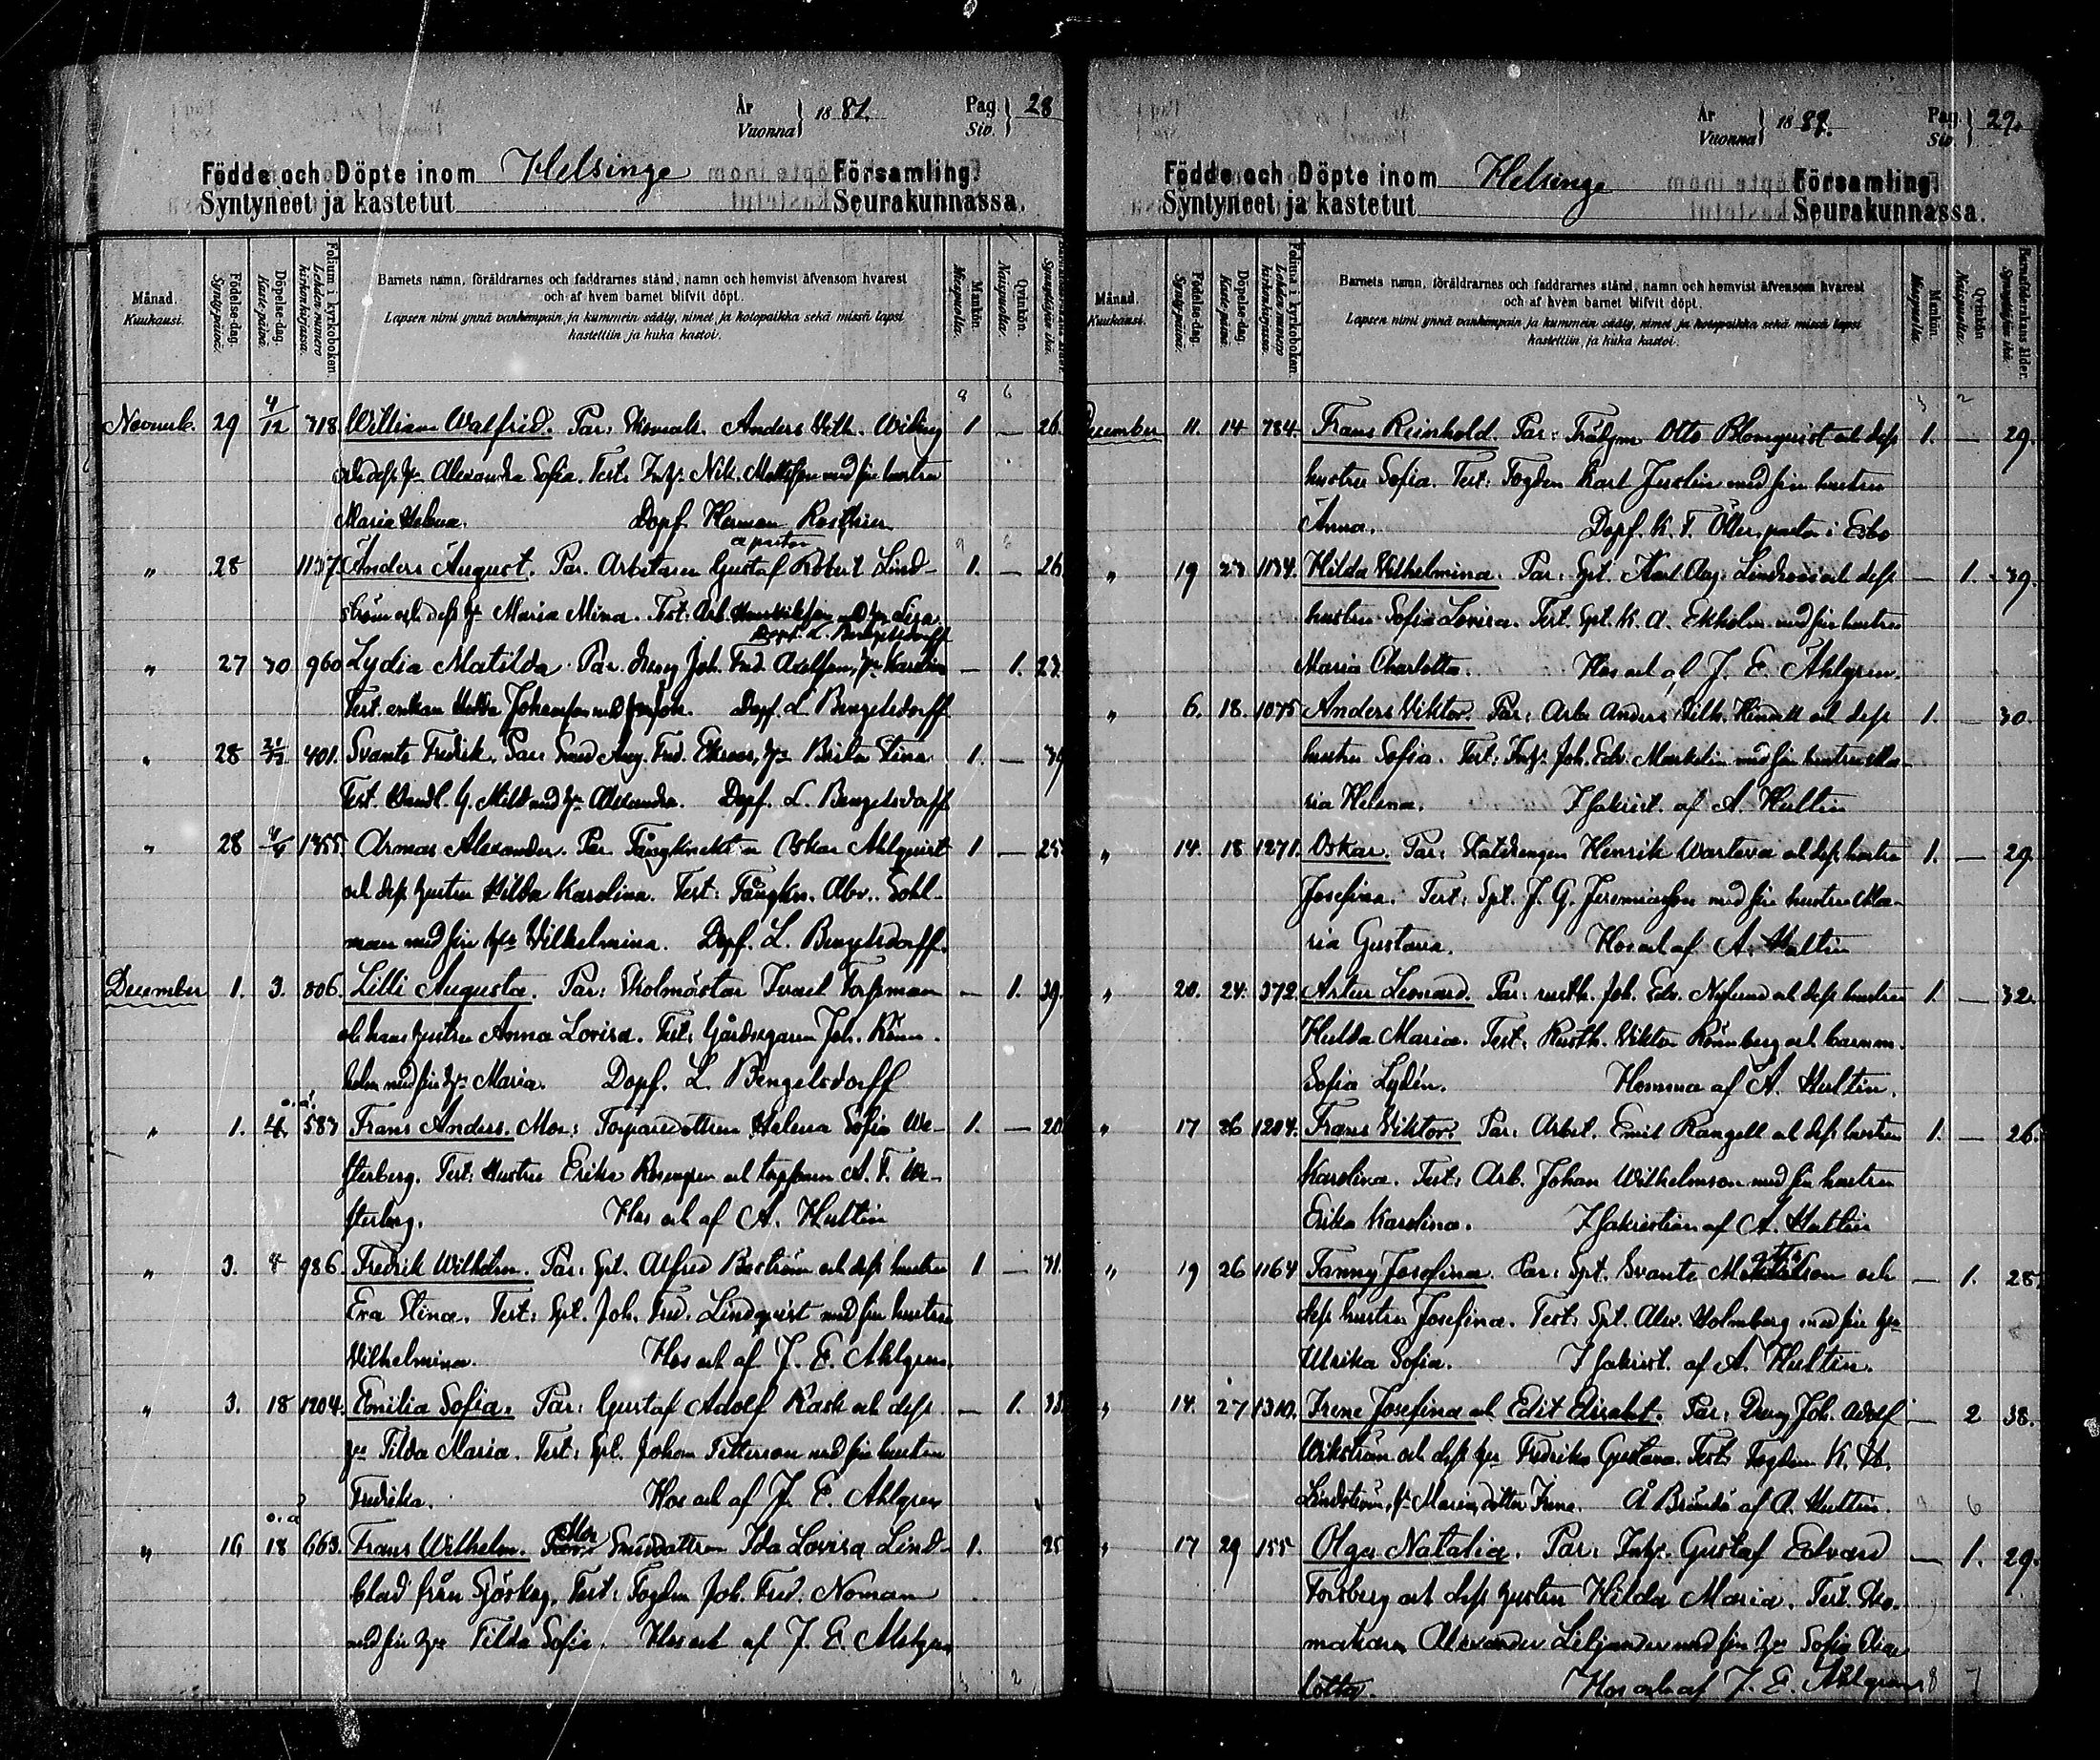 År
Vuonna 1881.
Pag
Siv. 28
Födde och Döpte inom Helsinge Församling.
Syntyneet ja kastetut Seurakunnassa.
Månad.
Kuukausi.
Födelse-dag.
Syntypäivä.
Döpelse-dag.
Kastepäivä.
Folium i kyrkoboken.
Lehden numero kirkonkirjassa.
Barnets namn, föräldrarnes och faddrarnes stånd, namn och hemvist äfvensom hvarest
och af hvem barnet blifvit döpt.
Lapsen nimi ynnä vanhempain ja kummein sääty, nimet ja kotopaikka sekä missä lapsi
kastettiin ja kuka kastoi.
Mankön.
Miespuolia.
Qvinkön.
Naispuolia.
9 6
Novemb. 29 4/12 318. William Walfrid. Par: Skomak. Anders Vilh. Wiberg 1. — 26.
och dess h:u Alexandra Sofia. Test: Inh: Nik. Mattsson med sin hustru
Maria Helena. Döpt. Herman Rosthier
a pastor
" 28 1137. Anders August. Par. Arbetaren Gustaf Robert Lind- 1. — 26
ström och dess h: Maria Mina. Test. Arb. Henriksson med h:u Lisa.
Döpt. L. Bengelsdorff
" 27 30 960 Lydia Matilda. Par. Dreng Joh. Fred. Adolfsson, h:u Karolina — 1. 23.
Test. enkan Hedda Johansson med son Joh. Döpt. L Bengelsdorff
" 28 401. Svante Fredrik. Par: Smed Aug. Fred. Ekroos, h:u Brita Stina 1. — 39
Test. Handl. G. Mild med h:u Alexandra. Döpt. L. Bengelsdorff
" 28 1355. Armas Alexander. Par. Fångknekten Oskar Ahlqvist 1 — 25
och dess hustru Hilda Karolina. Test: Fångkn. Alex. Sohl-
man med sin h:u Vilhelmina. Döpt. L. Bengelsdorff.
December 1. 3. 806. Lilli Augusta. Par: Skolmästar Israel Forssman — 1. 39.
och hans hustru Anna Lovisa. Test: Gårdsegaren Joh. Rönn-
holm med sin h:u Maria. Döpt. L. Bengelsdorff
o. ä.
" 1. 4. 583 Frans Anders. Mor: Torparedottren Helena Sofia We- 1. — 20
sterberg. Test: Hustru Erika Rosengren och torparen A. F. We-
sterberg. Hos och af A. Hultin
" 3. 8 986. Fredrik Wilhelm. Par: Spt. Alfred Boström och dess hustru 1 — 31.
Eva Stina. Test: Spt. Joh. Fred. Lindqvist med sin hustru
Vilhelmina. Hos och af J. E. Ahlgren.
" 3. 18 1204. Emilia Sofia. Par: Gustaf Adolf Rask och dess — 1. 38
h:u Tilda Maria. Test: Spt. Johan Petterson med sin hustru
Fredrika. Hos och af J. E. Ahlgren
o. ä
" 16 18 663. Frans Wilhelm. Mor Smeddottren Ida Lovisa Lind- 1. 25
blad från Sjöskog. Test: Fogden Joh. Fred. Noman
med sin h:u Tilda Sofia. Hos och af J. E. Ahlgren
3 2
År
Vuonna 1881.
Pag.
Siv. 29.
Födde och Döpte inom Helsinge Församling.
Syntyneet ja kastetut Seurakunnassa.
Månad.
Kuukausi.
Födelse-dag.
Syntypäivä.
Döpelse-dag.
Kastepäivä.
Folium i kyrkoboken.
Lehden numero kirkonkirjassa.
Barnets namn, föräldrarnes och faddrarnes stånd, namn och hemvist äfvensom hvarest
och af hvem barnet blifvit döpt.
Lapsen nimi ynnä vanhempain ja kummein sääty, nimet ja kotopaikka sekä missä lapsi
kastettiin ja kuka kastoi.
Mankön.
Miespuolia.
Qvinkön.
Naispuolia.
Barnaföderskans ålder.
Synnyttäjän ikä.
3 2
December 11. 14 784. Frans Reinhold. Par: Trädgm Otto Blomqvist och dess 1. — 29.
hustru Sofia. Test: Fogden Karl Justin med sin hustru
Anna. Döpt. K. F. Öller, pastor i Esbo
" 19 23 1134. Hilda Vilhelmina. Par: Spt. Karl Aug. Lindroos och dess — 1. 39.
hustru Sofia Lovisa. Test. Spt. K. A. Ekholm med sin hustru
Maria Charlotta. Hos och af J. E. Ahlgren.
" 6. 18. 1075 Anders Viktor. Par: Arb. Anders Vilh. Hindell och dess 1. — 30.
hustru Sofia. Test: Inh: Joh. Edv. Markelin med sin hustru Ma-
ria Helena. I sakrist. af A. Hultin
" 14. 18 1271. Oskar. Par: Statdrengen Henrik Wartova och dess hustru 1. — 29.
Josefina. Test: Spt. J. G. Jeremiasson med sin hustru Ma-
ria Gustava. Hos och af A. Hultin
" 20. 24. 372. Artur Leonard. Par: rusth. Joh. Edv. Nylund och dess hustru 1. — 32.
Hulda Maria. Test: Rusth. Viktor Rönnberg och barnm.
Sofia Lydén. Hemma af A. Hultin.
" 17 26 1204. Frans Viktor. Par: Arbet. Emil Rangell och dess hustru 1. — 26.
Karolina. Test: Arb. Johan Wilhelmson med sin hustru
Erika Karolina. I sakristian af A. Hultin
" 19 26 1164 Fanny Josefina. Par: Spt. Svante Mattsson och — 1. 28.
dess hustru Josefina. Test: Spt. Alex. Holmberg med sin h:u
Ulrika Sofia. I sakrist. af A. Hultin.
" 14. 27 1310. Irene Josefina och Edit Elisabet. Par: Dreng Joh. Adolf — 2 38.
Wikström och dess h:u Fredrika Gustava. Test: Fogden K. H.
Lindström, h: Maria, dotter Irene. Å Brändö af A. Hultin.
3 6
" 17 29 155 Olga Natalia. Par: Inh: Gustaf Edvard — 1. 29.
Forsberg och dess hustru Hilda Maria. Test. Sko-
makaren Alexander Liljander med sin h:u Sofia Char
lotta. Hos och af J. E. Ahlgren
8 7